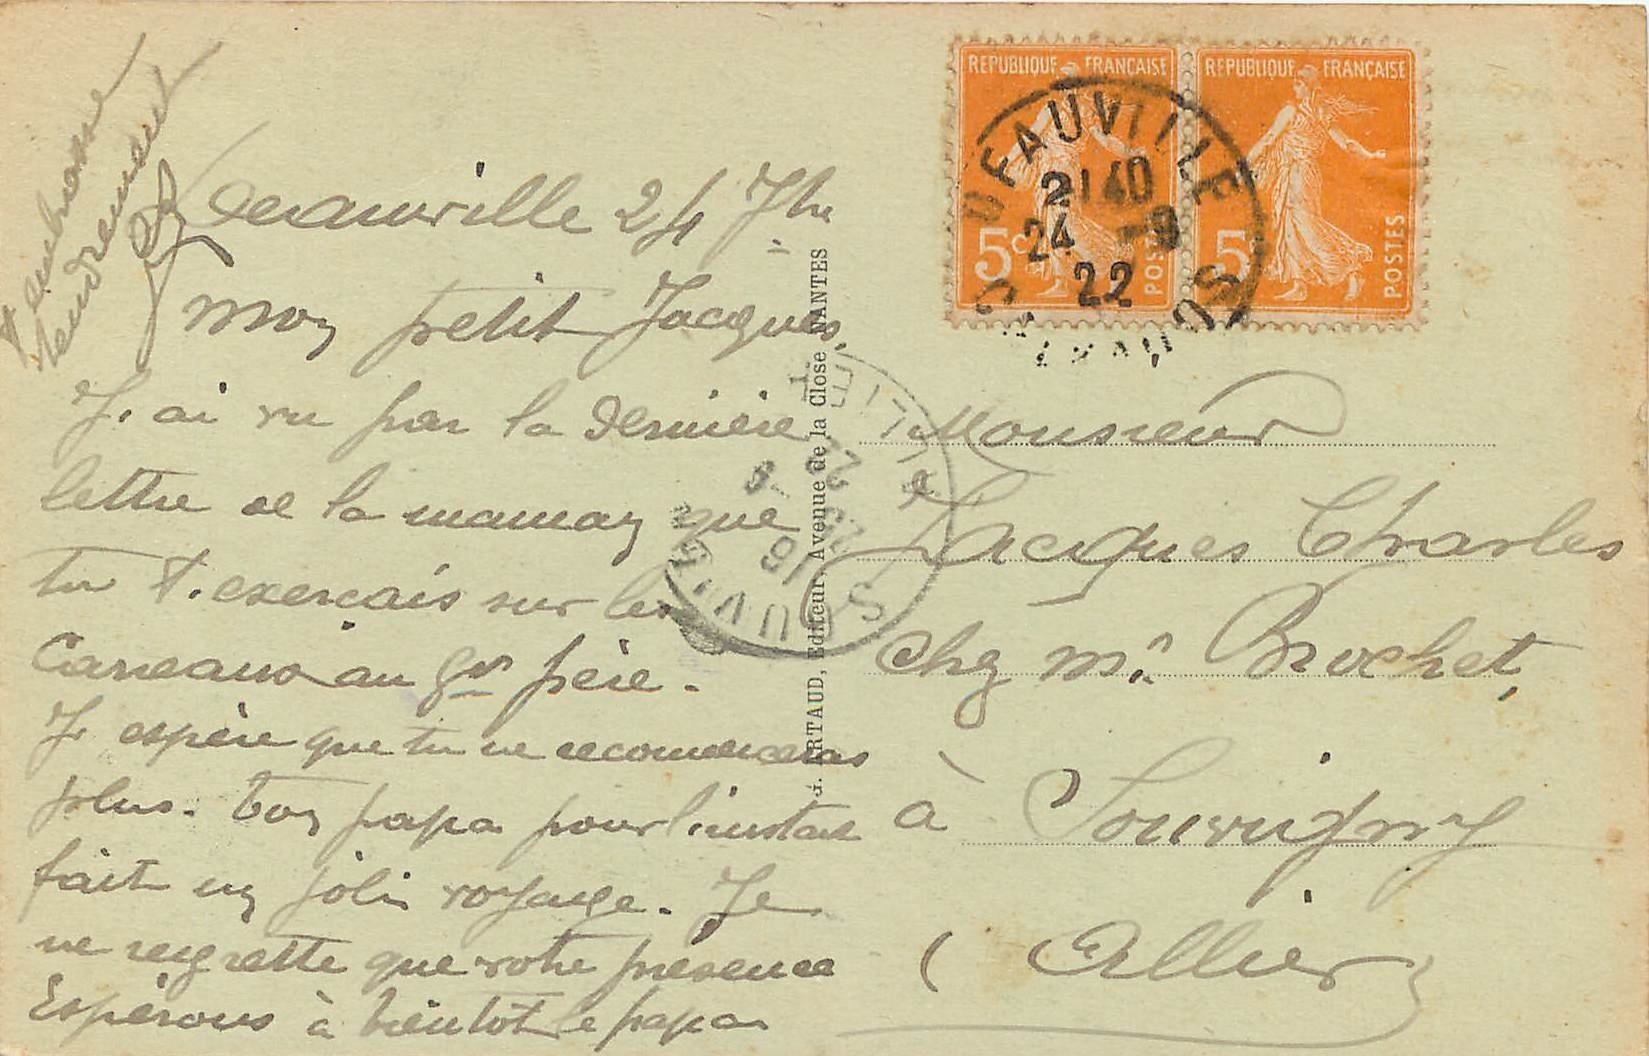 Deauville 24 7bre
Mon petit Jacques,
J'ai vu par la dernière
lettre de la maman que
tu t'exerçais sur les
Carreaux au gd père.
Je espère que tu ne recommenceras
plus. Ton papa pour l'instant
fait un joli voyage. Je
ne regrette que votre présence
Espérons à bientôt le papa
t'embrasse
tendrement
G. ARTAUD, Editeur, Avenue de la Close NANTES
REPUBLIQUE FRANÇAISE
5c
POSTES
REPUBLIQUE FRANÇAISE
5
POSTES
DEAUVILLE
21 40
24 -9
22
CALVADOS
SOUVIGNY
ALLIER
16
25 -9
22
Monsieur
Jacques Charles
chez Mr Brochet,
à Souvigny
(Allier)